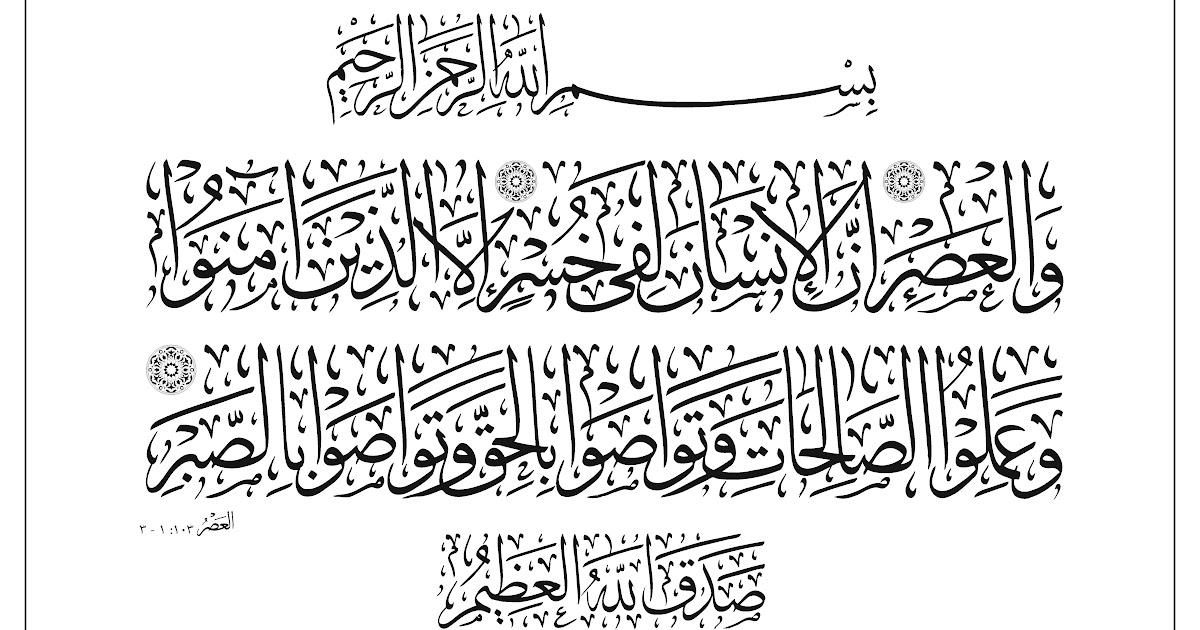 بِسْمِ اللَّهِ الرَّحْمَنِ الرَّحِيمِ
وَالْعَصْرِ إِنَّ الْإِنسَانَ لَفِي خُسْرٍ إِلَّا الَّذِينَ آمَنُوا
وَعَمِلُوا الصَّالِحَاتِ وَتَوَاصَوْا بِالْحَقِّ وَتَوَاصَوْا بِالصَّبْرِ
العَصْرُ ١٠٣: ١ - ٣
صَدَقَ اللَّهُ الْعَظِيمُ